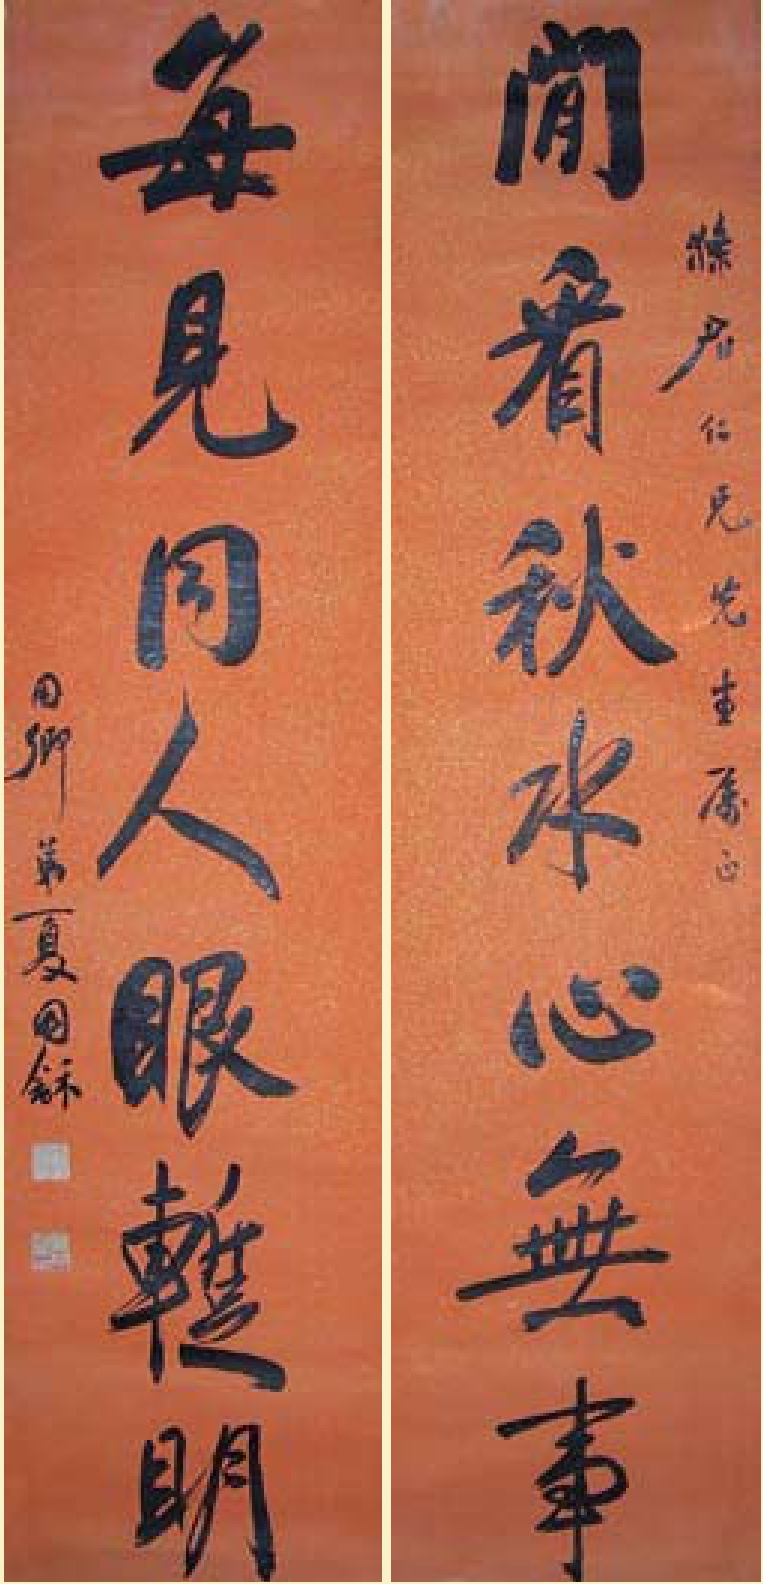 君仁兄先生屬正
閒看秋水心無事
每見同人眼明
用卿弟夏同龢